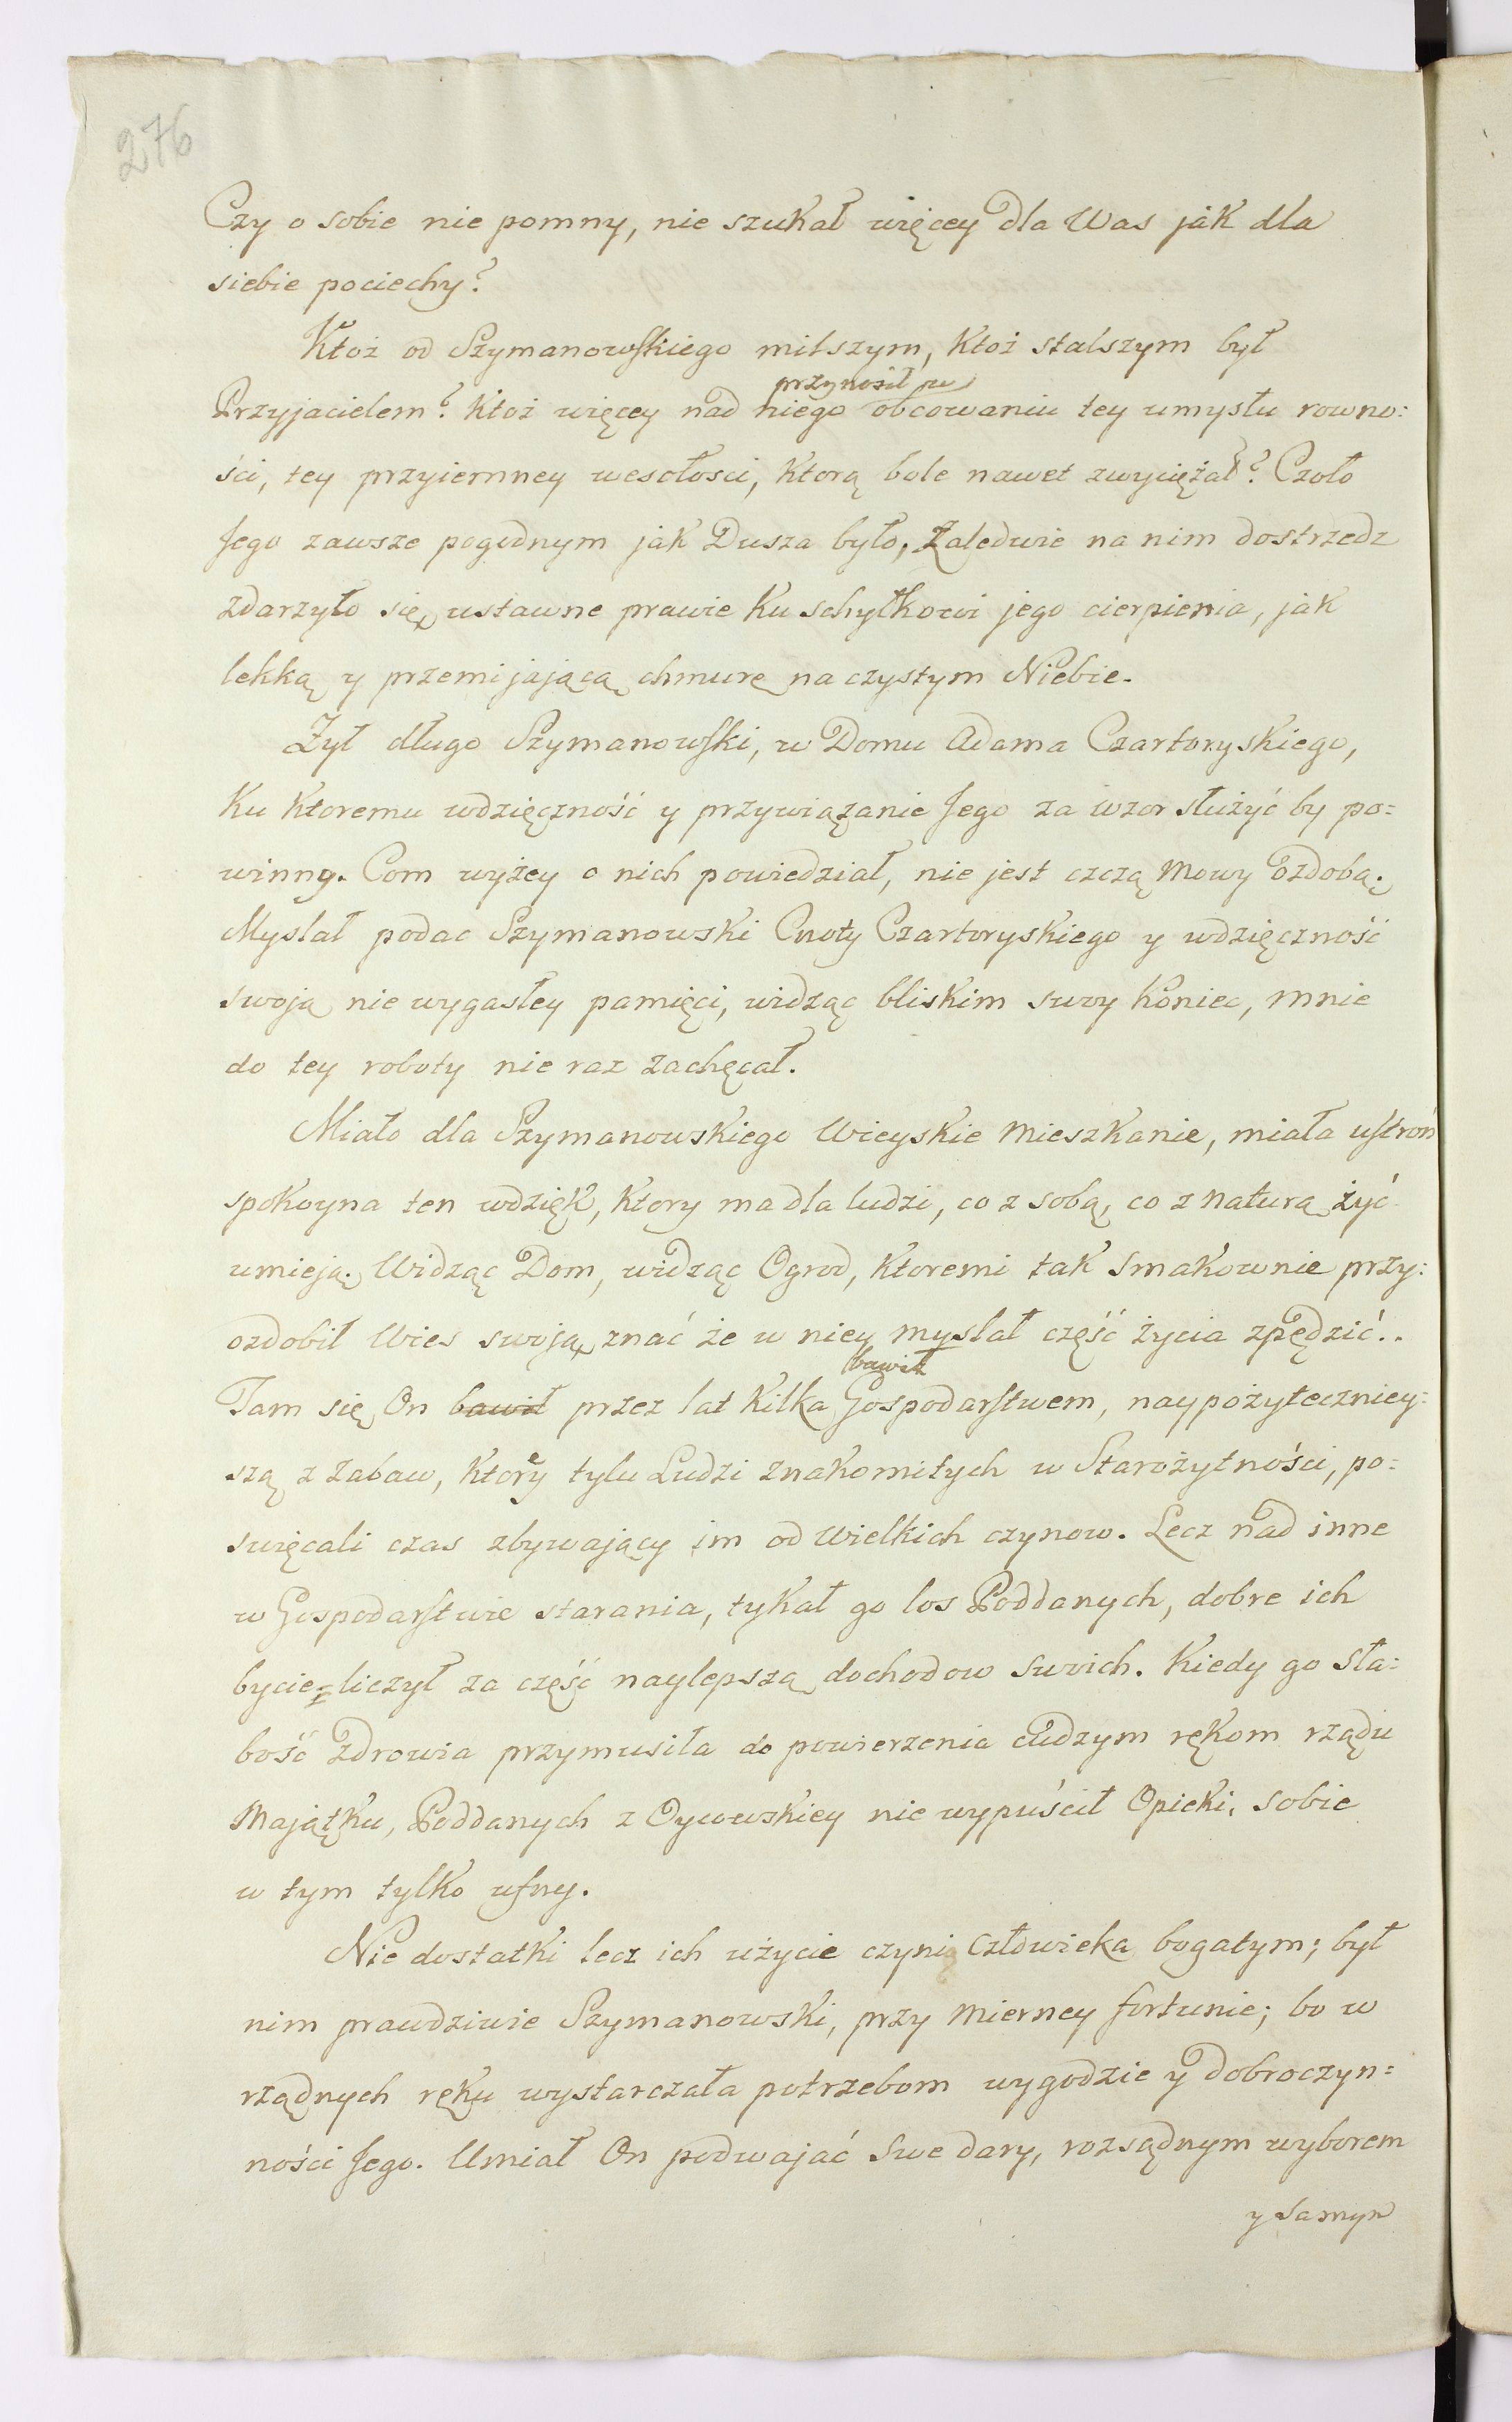 276
Czy o sobie nie pomny, nie szukał więcey dla Was jak dla
siebie pociechy?
Ktoż od Szymanowskiego milszym, Ktoż stalszym był
przynosił w
Przyjacielem? Ktoż więcey nad niego obcowaniu tey umysłu rowno:
ści, tey przyiemney wesołosci, Ktorą bole nawet zwyciężał? Czoło
Jego zawsze pogodnym jak Dusza było, Zaledwie na nim dostrzedz
zdarzyło się, ustawne prawie Ku schyłkowi jego cierpienia, jak
lekką y przemijającą chmurę na czystym Niebie.
Żył długo Szymanowski, w Domu Adama Czartoryskiego,
Ku Ktoremu wdzięczność y przywiązanie Jego za wzor służyć by po=
winny. Com wyżey o nich powiedział, nie jest czczą Mowy ozdobą.
Myslał podac Szymanowski Cnoty Czartoryskiego y wdzięczność
swoją nie wygasłey pamięci, widząc bliskim swoy Koniec, mnie
do tey roboty nie raz zachęcał.
Miało dla Szymanowskiego Wieyskie Mieszkanie, miała ustroń
spokoyna ten wdzięk, Ktory ma dla ludzi, co z sobą, co z naturą żyć
umieją. Widząc Dom, widząc Ogrod, Ktoremi tak smakownie przy:
ozdobił Wies swoją, znać że w niey myslał część życia zpędzić..
bawił
Tam się On bawił przez lat Kilka Gospodarstwem, naypożyteczniey:
szą z Zabaw, Ktorey tylu Ludzi znakomitych w Starożytności, po=
swięcali czas zbywający im od Wielkich czynow. Lecz nad inne
w Gospodarstwie starania, tykał go los Poddanych, dobre ich
bycie liczył za część naylepszą dochodow swoich. Kiedy go sła:
bość Zdrowia przymusiła do powierzenia cudzym rękom rządu
Majątku, Poddanych z Oycowskiey nie wypuścił Opieki, sobie
w tym tylko ufny.
Nie dostatki lecz ich użycie czyni Człowieka bogatym; był
nim prawdziwie Szymanowski, przy Mierney fortunie; bo w
rządnych ręku wystarczała potrzebom wygodzie y dobroczyn=
ności Jego. Umiał On podwajać Swe dary, rozsądnym wyborem
y samym